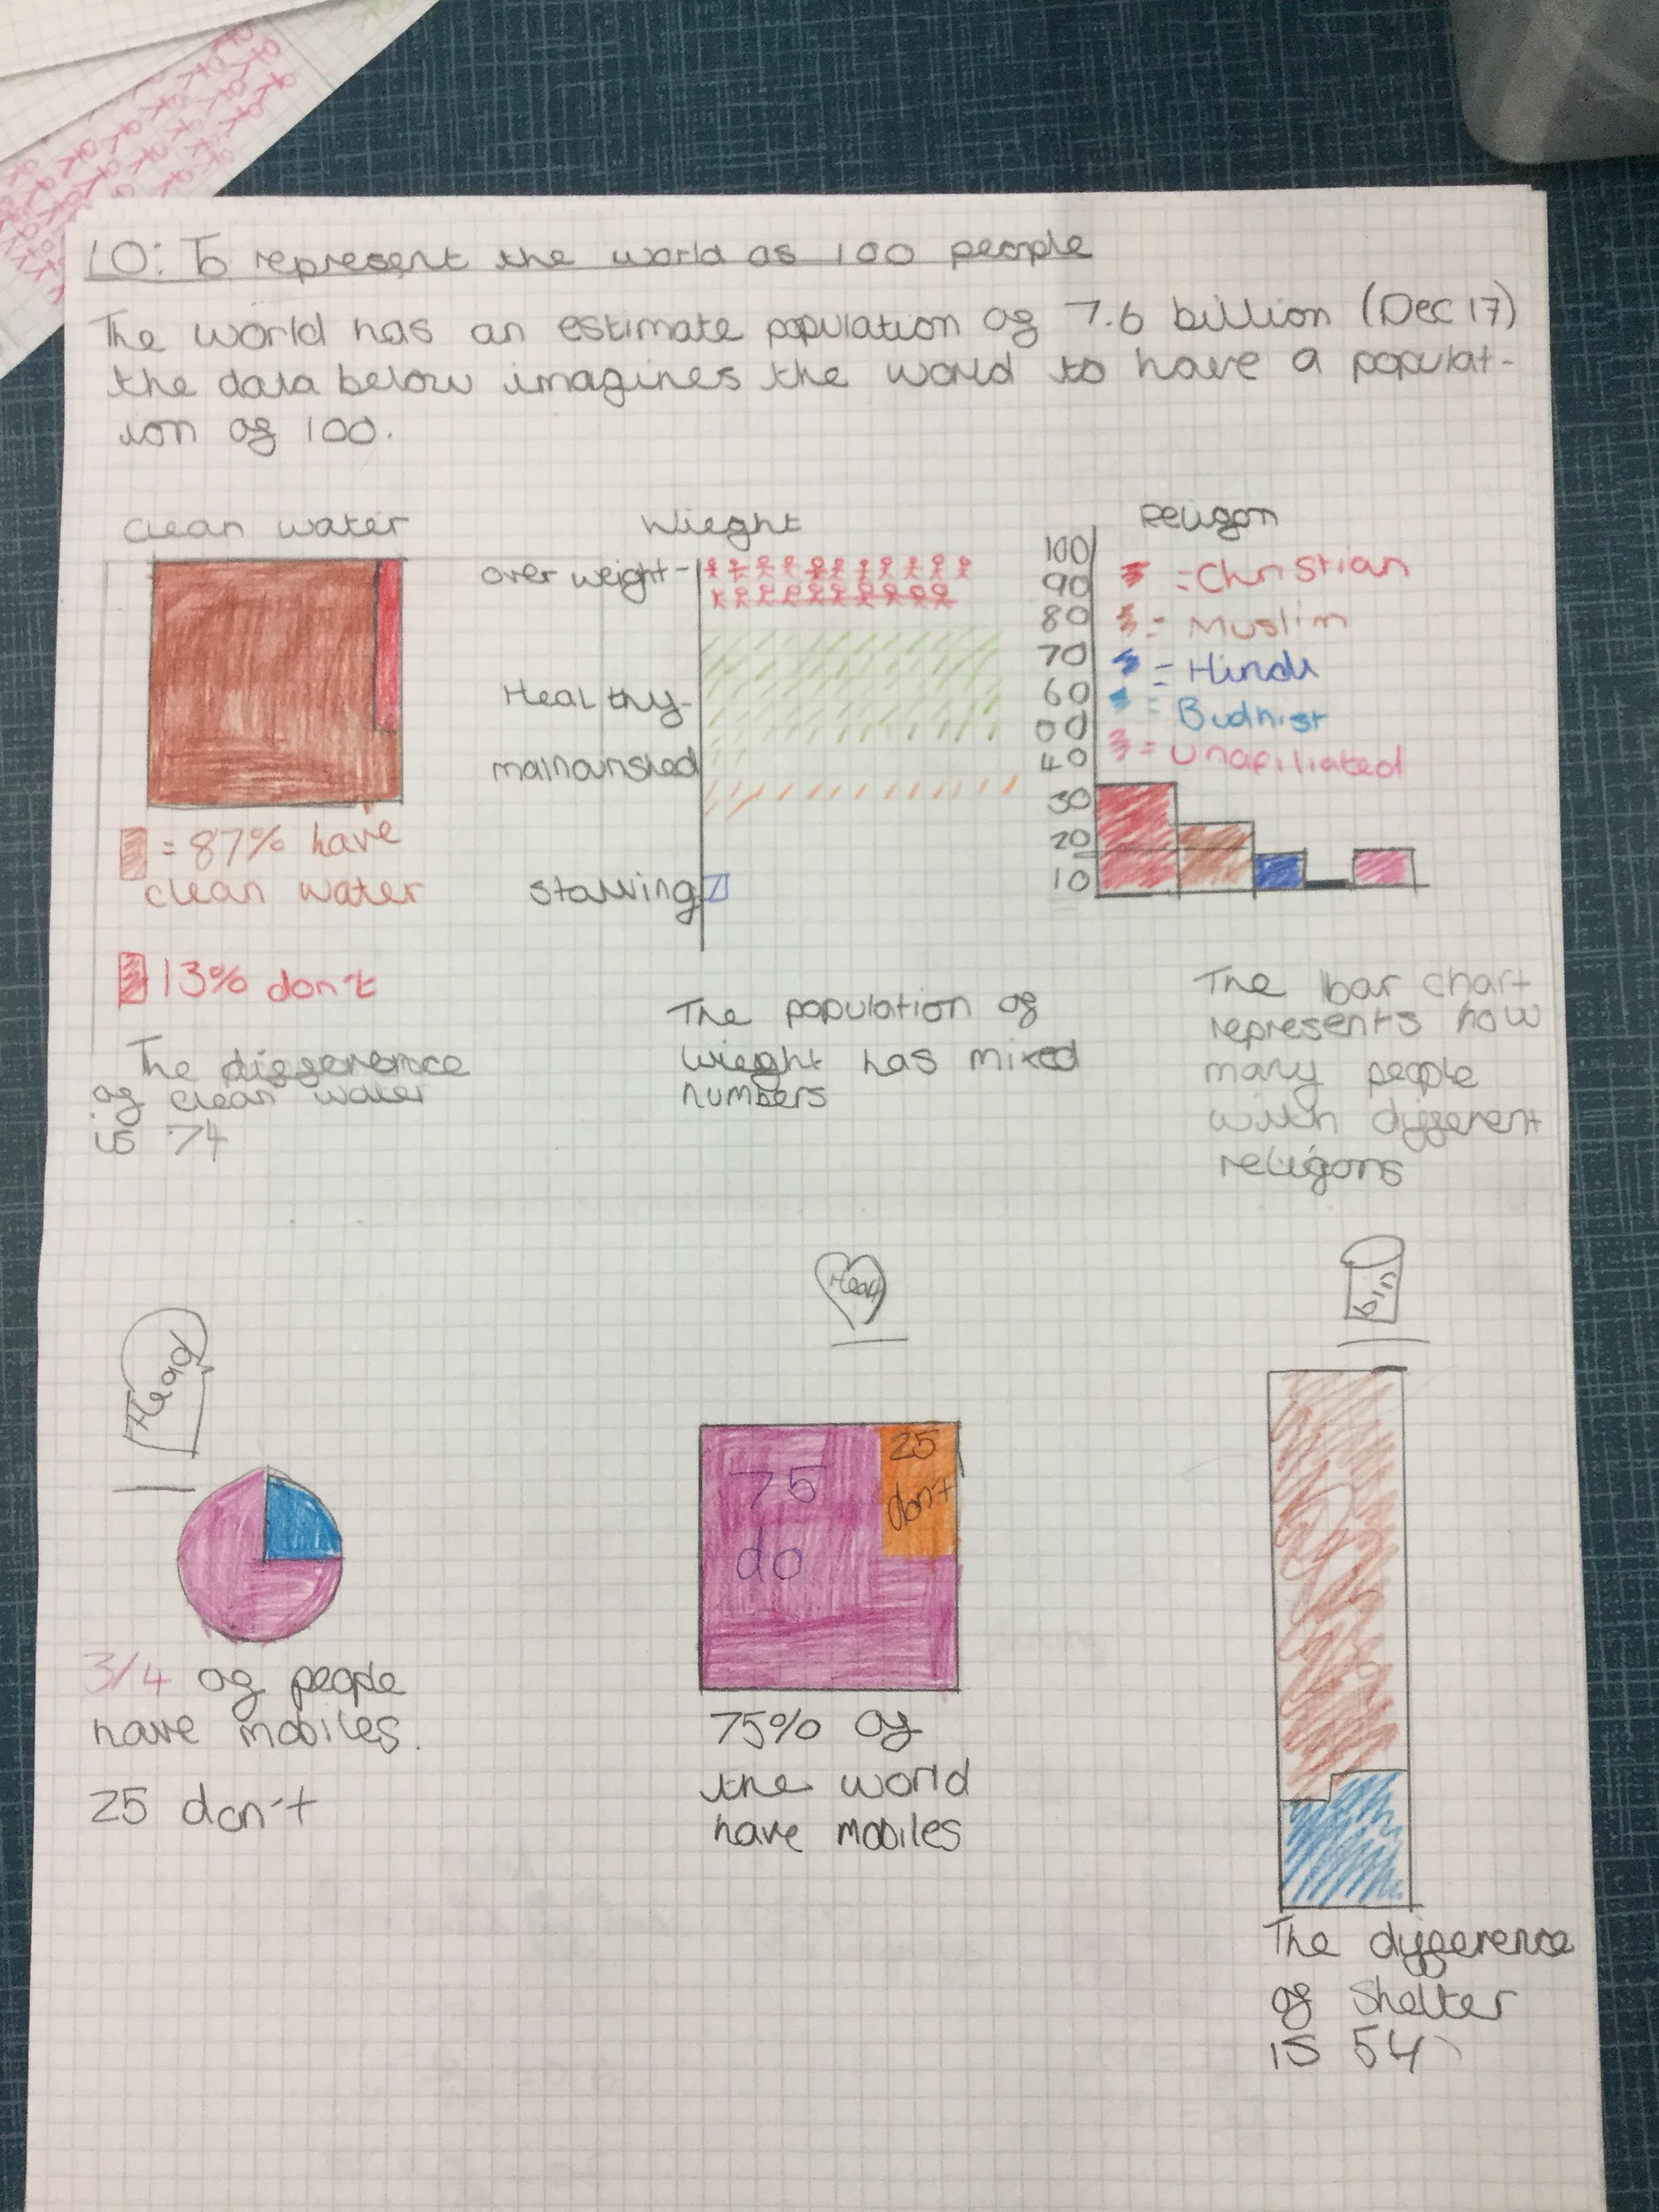 LO: To represent the world as 100 people
The world has an estimate population of 7.6 billion (Dec 17)
the data below imagines the world to have a populat-
ion of 100.
clean water
= 87% have
clean water
13% don't
The difference
of clean water
is 74
Wieght
over weight
Healthy
malnourished
starving
The population of
wieght has mixed
numbers
Religon
100
90
80
70
60
00
40
30
20
10
= Christian
= Muslim
= Hindu
= Budhist
= Unafiliated
The bar chart
represents how
many people
with different
religons
Head
3/4 of people
have mobiles.
25 don't
Heart
75
do
25
don't
75% of
the world
have mobiles
bin
The difference
of Shelter
is 54